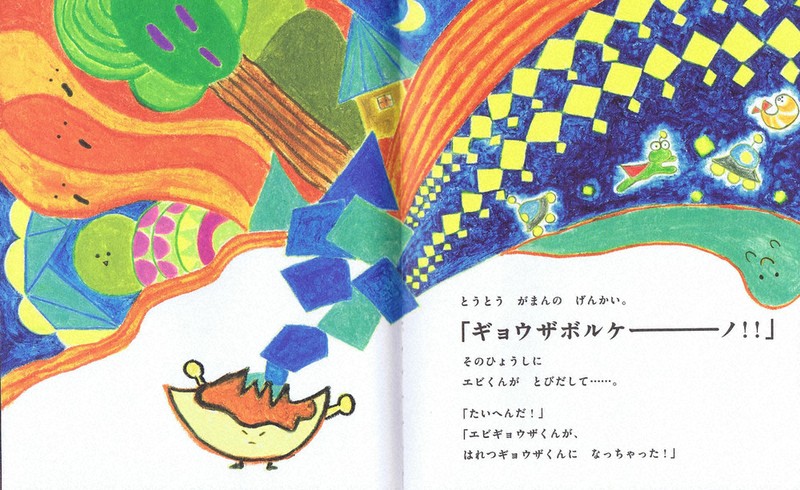 とうとう　がまんの　げんかい。
「ギョウザボルケ――――ノ!!」
そのひょうしに
エビくんが　とびだして……。
「たいへんだ！」
「エビギョウザくんが、
はれつギョウザくんに　なっちゃった！」